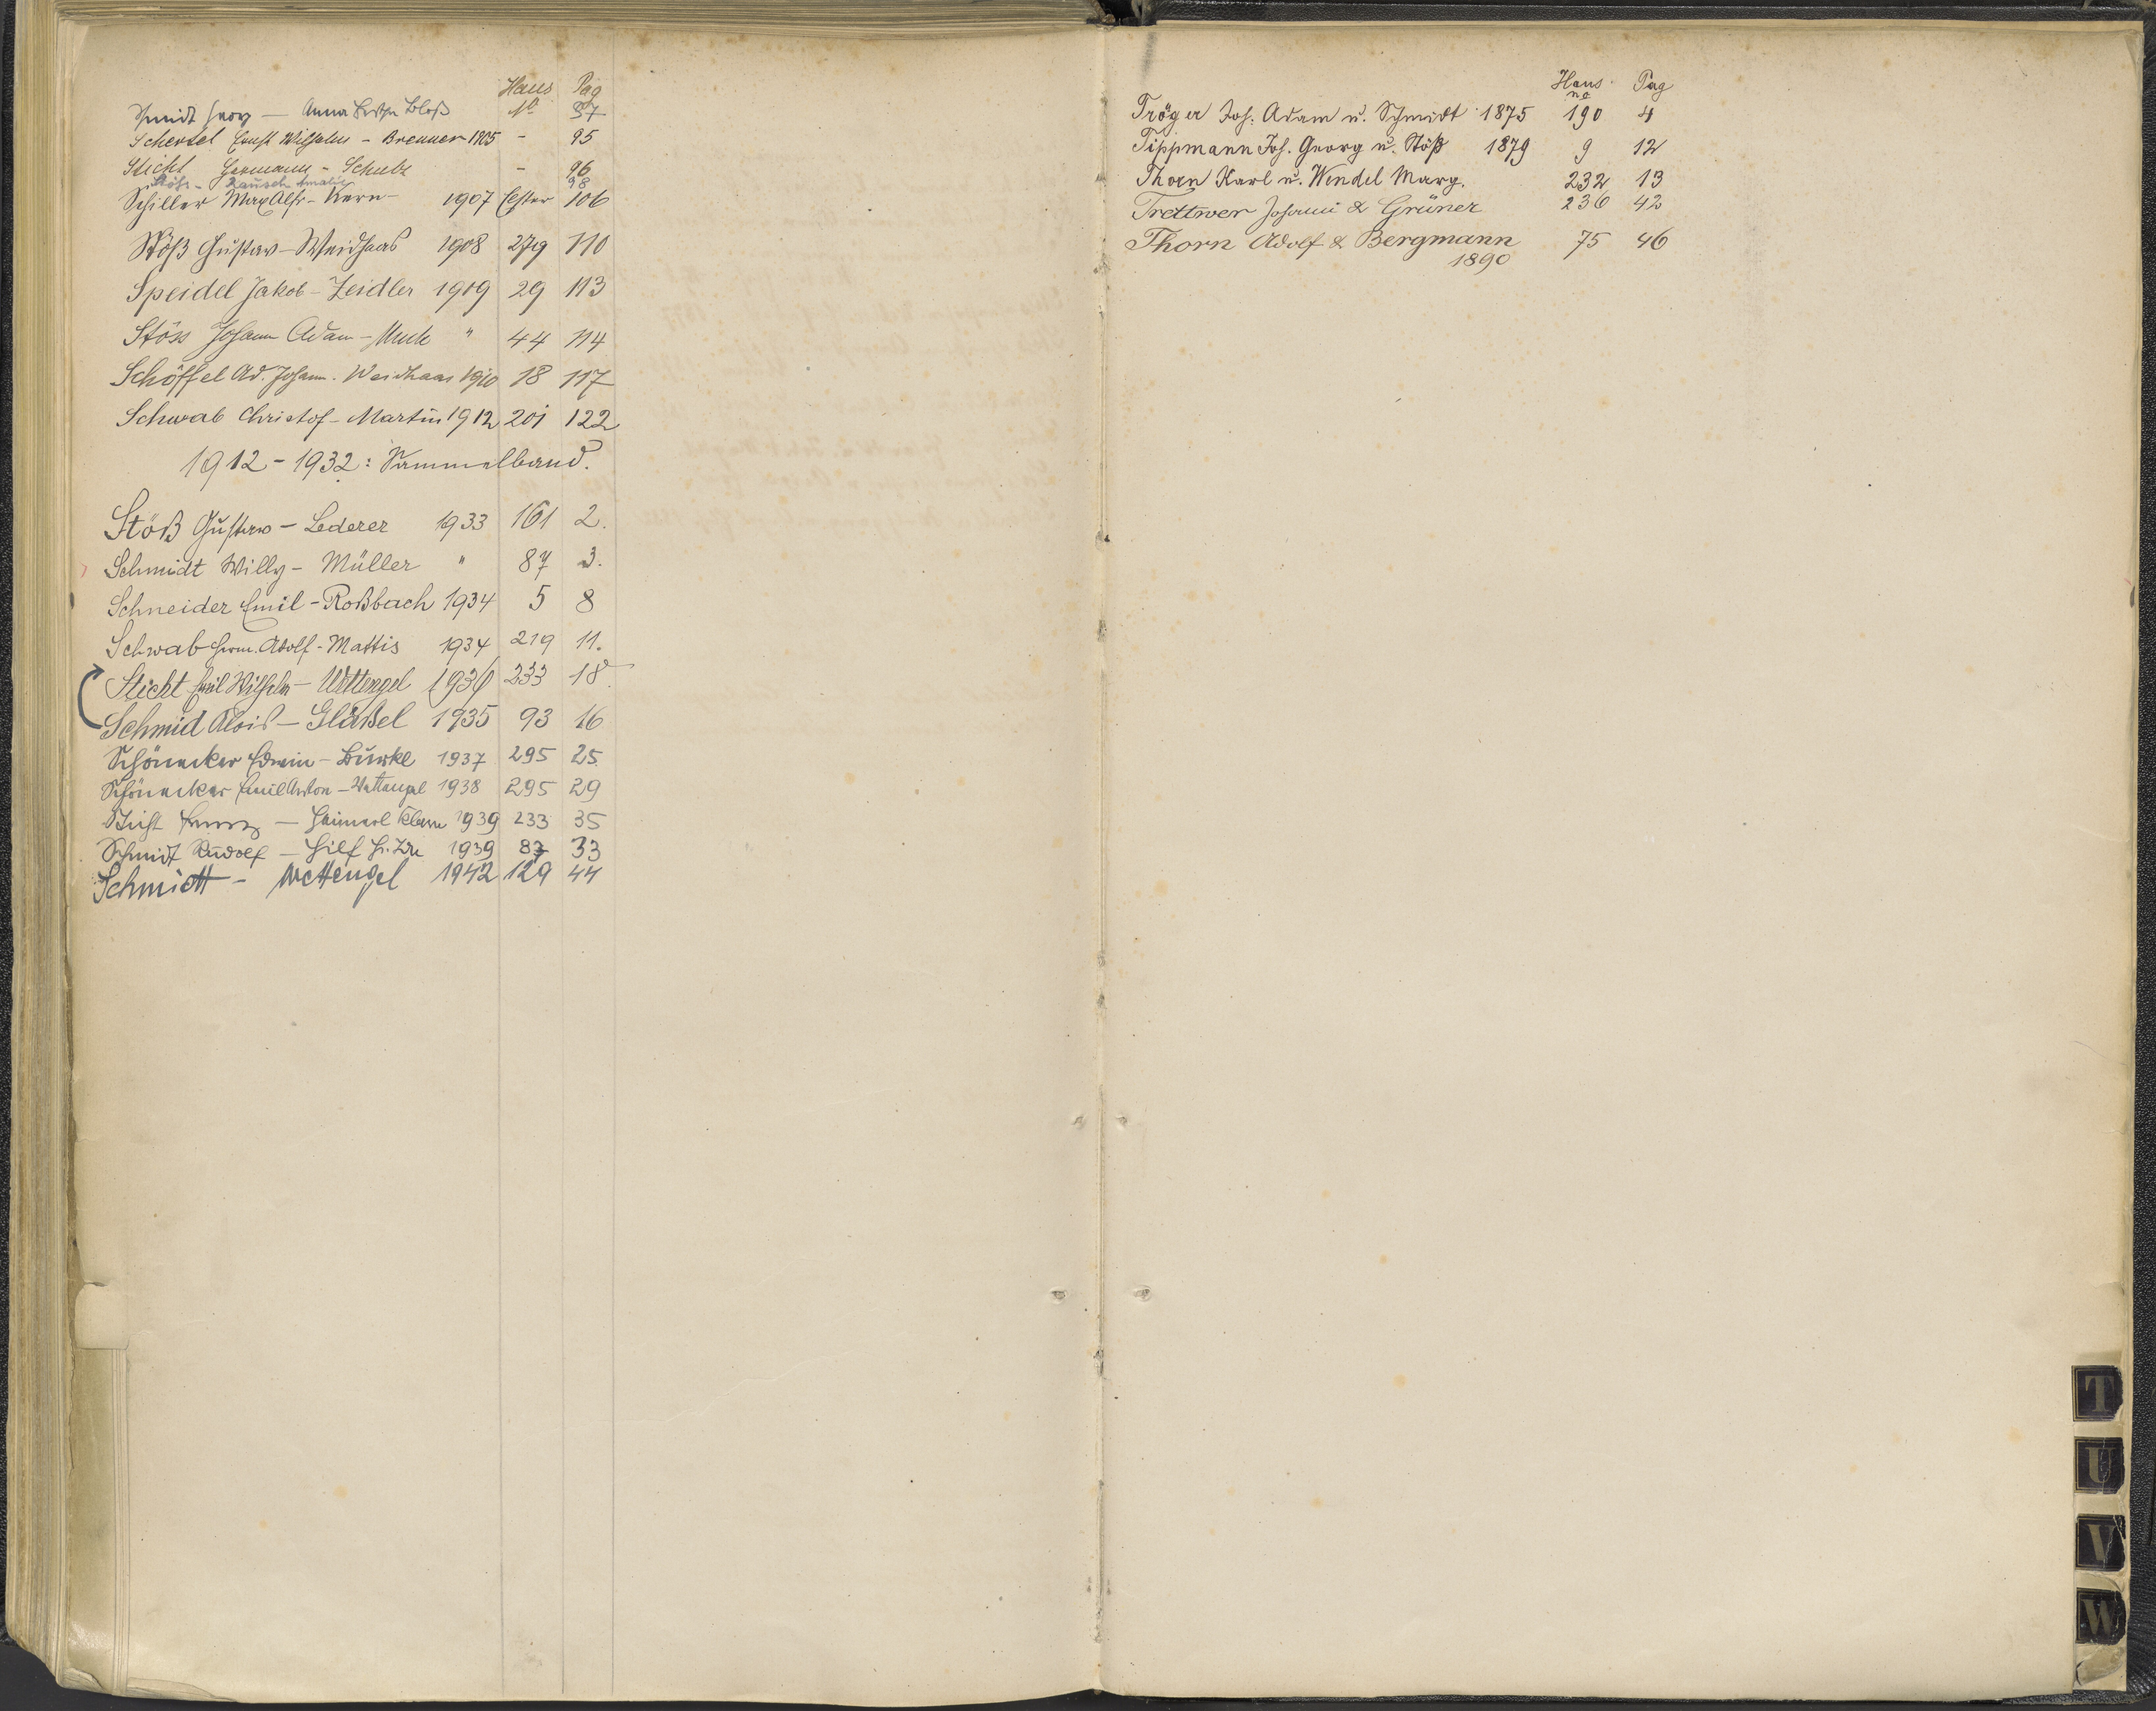 Haus Pag
Schmidt Georg — Anna Bertha Bloß No 87
Schertel Ernst Wilhelm - Brenner 1905 - 95
Stickt Hermann - Schulz - 96
Stöhr - Rausch Amalie 98
Schiller Max Alfr - Kern - 1907 Ester 106
Stöß Gustav - Weidhaas 1908 279 110
Speidel Jakob - Zeidler 1909 29 113
Stöss Johann Adam - " 44 114
Schöffel Ad. Johann. Weidhaas 1910 18 117
Schwab Christof - Martin 1912 201 122
1912 - 1932: Sammelband.
Stöß Gustav - Lederer 1933 161 2.
Schmidt Willy - Müller " 87 3.
Schneider Emil - Roßbach 1934 5 8
Schwab Herm. Adolf - Mattis 1934 219 11.
Stickt Emil Wilhelm - Wettengel 1936 233 18.
Schmid Alois - Gläßel 1935 93 16
Schönecker Edwin - Burkl 1937 295 25.
Schönecker Emil Anton - Wettengel 1938 295 29
Sticht Franz — Heimerl Klara 1939 233 35
Schmidt Rudolf — Hilf 1939 87 33
Schmidt - Wettengel 1942 129 44
Haus Pag
no
Tröger Joh. Adam u. Schmidt 1875 190 4
Tippmann Joh. Georg u. Stöß 1879 9 12
Thorn Karl u. Wendel Marg. 232 13
Trettwer Johann & Grüner 236 42
Thorn Adolf & Bergmann 75 46
1890
T
U
V
W